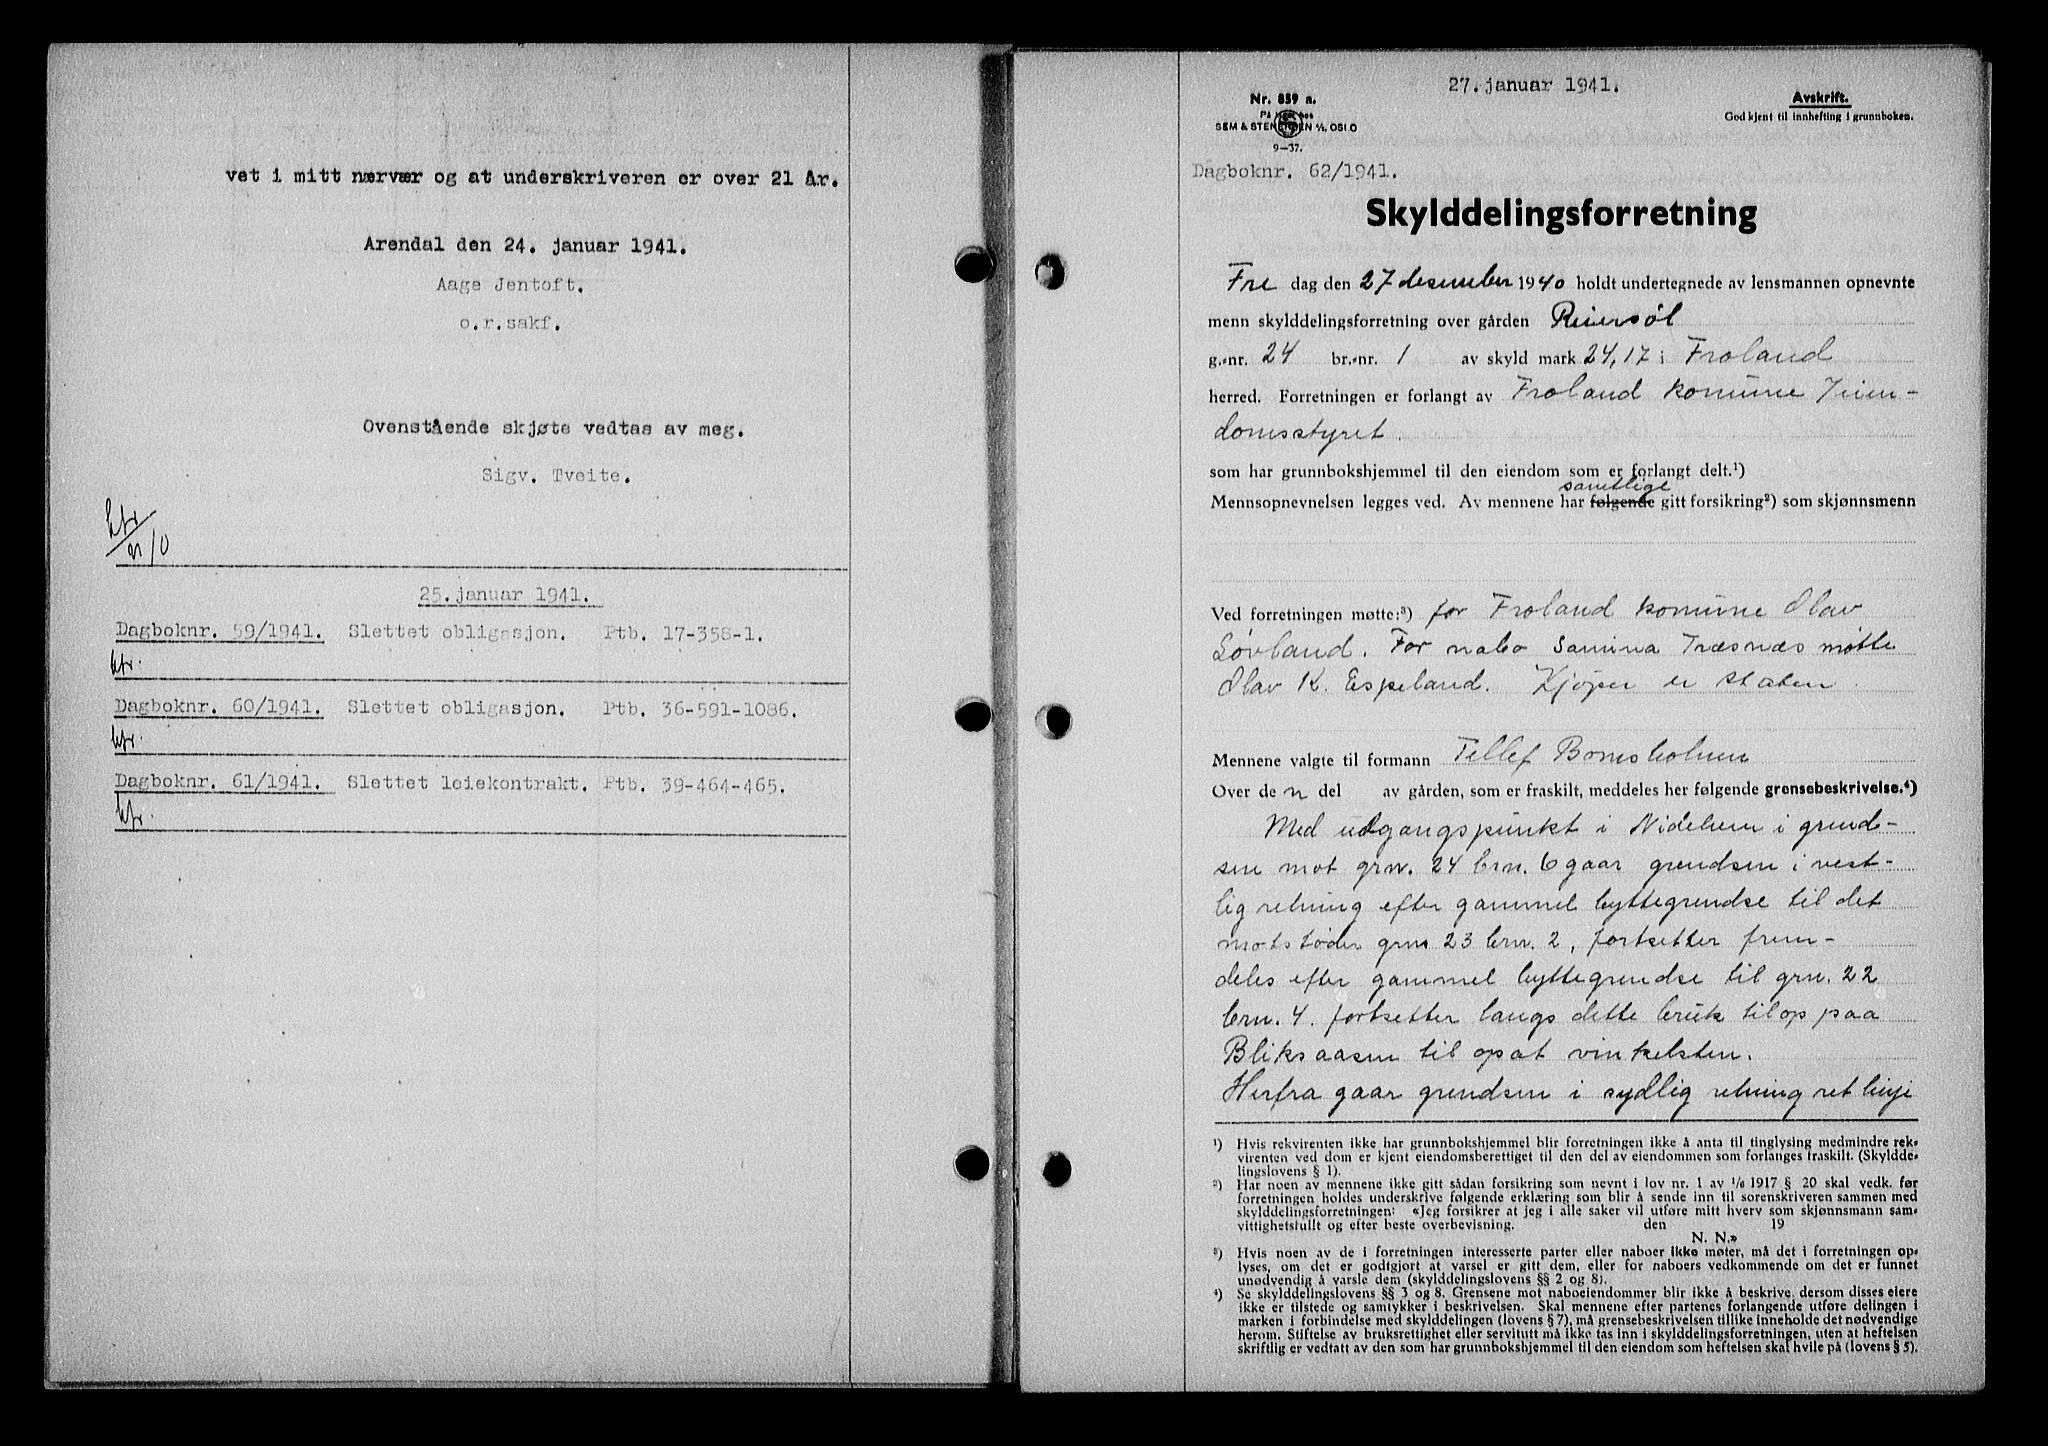 vet i mitt nærvær og at underskriveren er over 21 år.
Arendal den 24. januar 1941.
Aage Jentoft.
o.r.sakf.
Ovenstående skjøte vedtas av meg.
Sigv. Tveite.
25. januar 1941.
Dagboknr. 59/1941. Slettet obligasjon. Ptb. 17-358-1.
Dagboknr. 60/1941. Slettet obligasjon. Ptb. 36-591-1086.
Dagboknr. 61/1941. Slettet leiekontrakt. Ptb. 39-464-465.
27. januar 1941.
Nr. 859 a.
SEM & STENERSEN A/S, OSLO
9-37.
Avskrift.
Godkjent til innhefting i grunnboken.
Dagboknr. 62/1941.
Skylddelingsforretning
Fre dag den 27 desember 1940 holdt undertegnede av lensmannen opnevnte
menn skylddelingsforretning over gården Reiersøl
g.-nr. 24 br.-nr. 1 av skyld mark 24,17 i Froland
herred. Forretningen er forlangt av Froland komune Jeien-
domsstyret.
som har grunnbokshjemmel til den eiendom som er forlangt delt.¹)
samtlige
Mennsopnevnelsen legges ved. Av mennene har følgende gitt forsikring²) som skjønnsmenn
Ved forretningen møtte:³) for Froland komune Olav
Løvland. For nabo Samina Træsnæs møtte
Olav K. Espeland. Kjøper er staten
Mennene valgte til formann Tellef Bomsholmen
Over de n del av gården, som er fraskilt, meddeles her følgende grensebeskrivelse.⁴)
Med udgangspunkt i Nidelven i grend-
sen mot grn. 24 brn. 6 gaar grendsen i vest-
lig retning efter gammel byttegrendse til det
motstøder grn 23 brn. 2, fortsetter frem-
deles efter gammel byttegrendse til grn. 22
brn. 4. fortsetter langs dette bruk til op paa
Bliksaasen til opsat vinkelsten.
Herfra gaar grendsen i sydlig retning ret linje
¹) Hvis rekvirenten ikke har grunnbokshjemmel blir forretningen ikke å anta til tinglysing medmindre rek-
virenten ved dom er kjent eiendomsberettiget til den del av eiendommen som forlanges fraskilt. (Skyldde-
lingslovens § 1).
²) Har noen av mennene ikke gitt sådan forsikring som nevnt i lov nr. 1 av 1/6 1917 § 20 skal vedk. før
forretningen holdes underskrive følgende erklæring som blir å sende inn til sorenskriveren sammen med
skylddelingsforretningen: «Jeg forsikrer at jeg i alle saker vil utføre mitt hverv som skjønnsmann sam-
vittighetsfullt og efter beste overbevisning. den 19
N. N.»
³) Hvis noen av de i forretningen interesserte parter eller naboer ikke møter, må det i forretningen op-
lyses, om det er godtgjort at varsel er gitt dem, eller for naboers vedkommende om det er funnet
unødvendig å varsle dem (skylddelingslovens §§ 2 og 8).
⁴) Se skylddelingslovens §§ 3 og 8. Grensene mot naboeiendommer blir ikke å beskrive, dersom disses eiere
ikke er tilstede og samtykker i beskrivelsen. Skal mennene efter partenes forlangende utføre delingen i
marken i forbindelse med skylddelingen (lovens § 7), må grensebeskrivelsen tillike inneholde det nødvendige
herom. Stiftelse av bruksrettighet eller servitutt må ikke tas inn i skylddelingsforretningen, uten at heftelsen
skriftlig er vedtatt av den som har grunnbokshjemmel til den eiendom som heftelsen skal hvile på (lovens § 5).